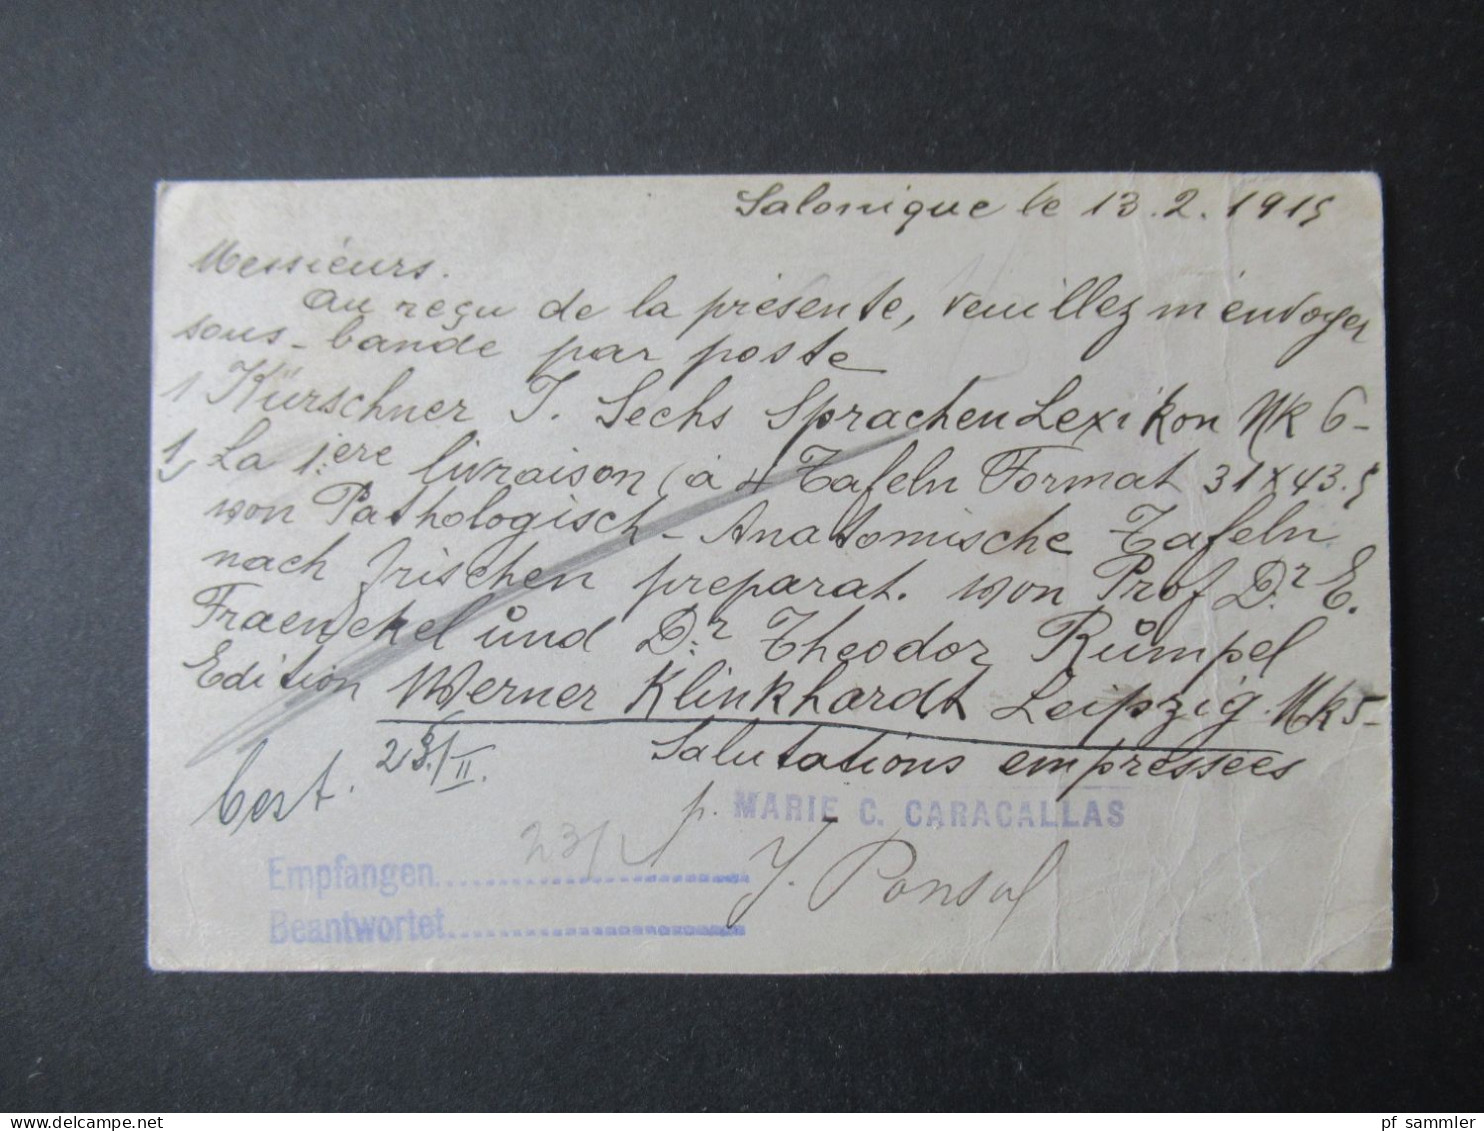 Salonique le 13.2.1915
Messieurs.
Au reçu de la présente, veuillez m'envoyer
sous-bande par poste
1 Kürschner J. Sechs Sprachen Lexikon Mk 6-
1, La 1ère livraison (à 4 Tafeln Format 31x43.5
von Pathologisch-Anatomische Tafeln
nach frischen preparat. von Prof Dr. E.
Fraenckel und Dr. Theodor Rumpel
Edition Werner Klinkhardt Leipzig. Mk 5-
Salutations empressées
best. 23./II.
p. MARIE C. CARACALLAS
J. Ponsol
Empfangen 23/2
Beantwortet
pf_sammler
www.delcampe.net